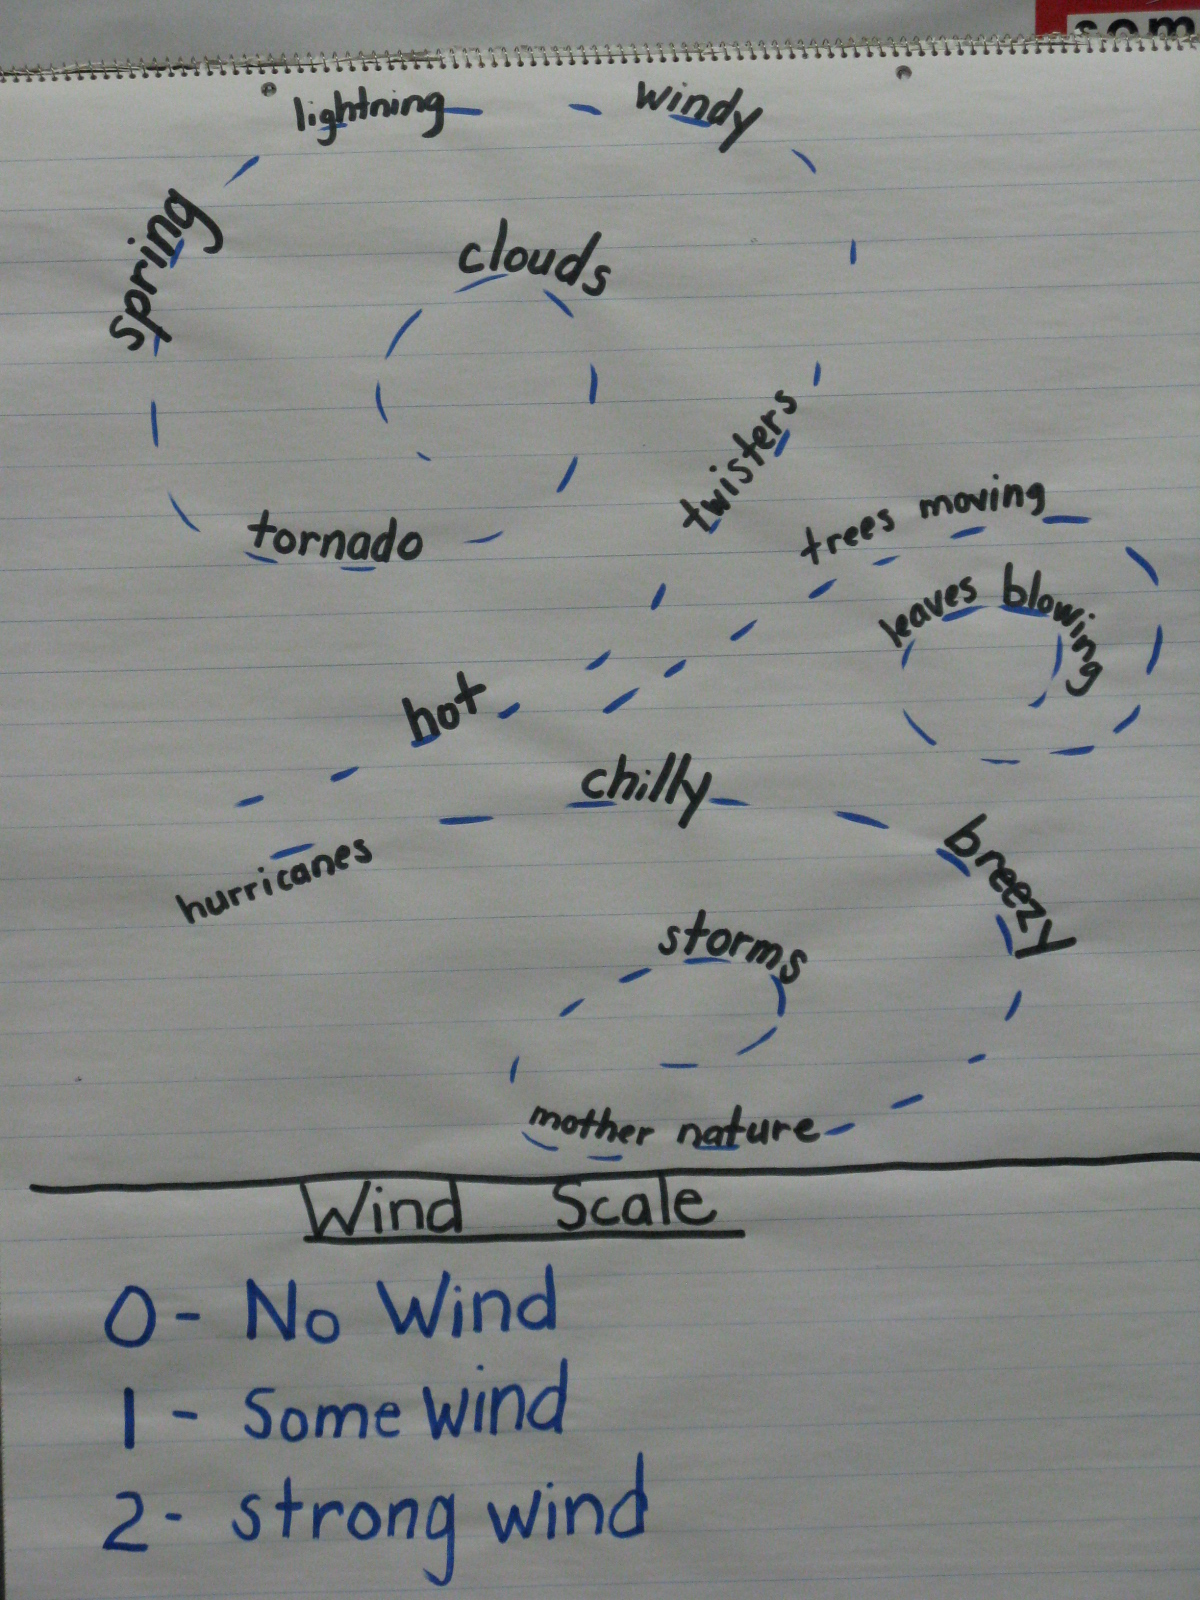 som
lightning
windy
spring
clouds
tornado
twisters
trees moving
leaves blowing
hot
chilly
hurricanes
breezy
storms
mother nature
Wind Scale
0 - No Wind
1 - Some wind
2 - strong wind